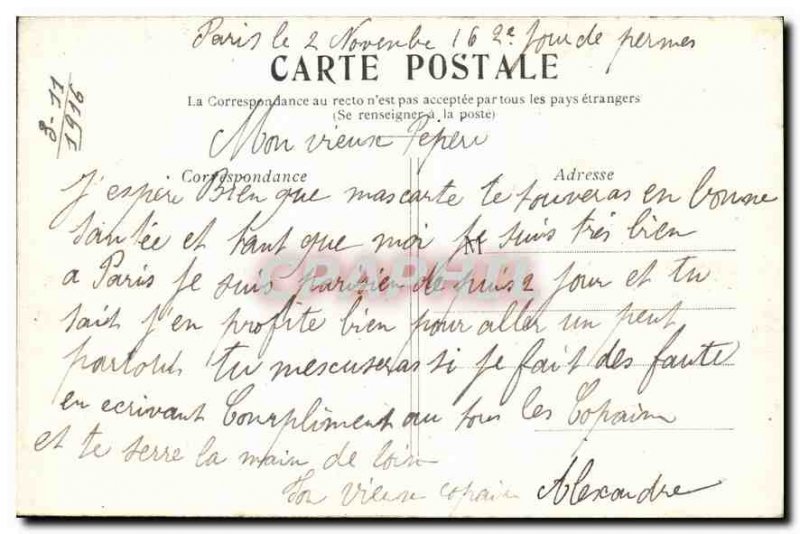 Paris le 2 Novenbe 16 2e Jour de permes
CARTE POSTALE
La Correspondance au recto n'est pas acceptée par tous les pays étrangers
(Se renseigner à la poste)
3-11
1916
Mon vieux Pepere
Correspondance
Adresse
J'espère Bien que mascarte te touveras en bonne
santée et tant que moi Je suis très bien
M
a Paris Je suis parisien depuis 2 Jour et tu
sait J'en profite bien pour aller un peut
partouts tu mescuseras si Je fait des faute
en ecrivant Compliment au tous les Copain
et te serre la main de loin
Ton vieux copain Alexandre